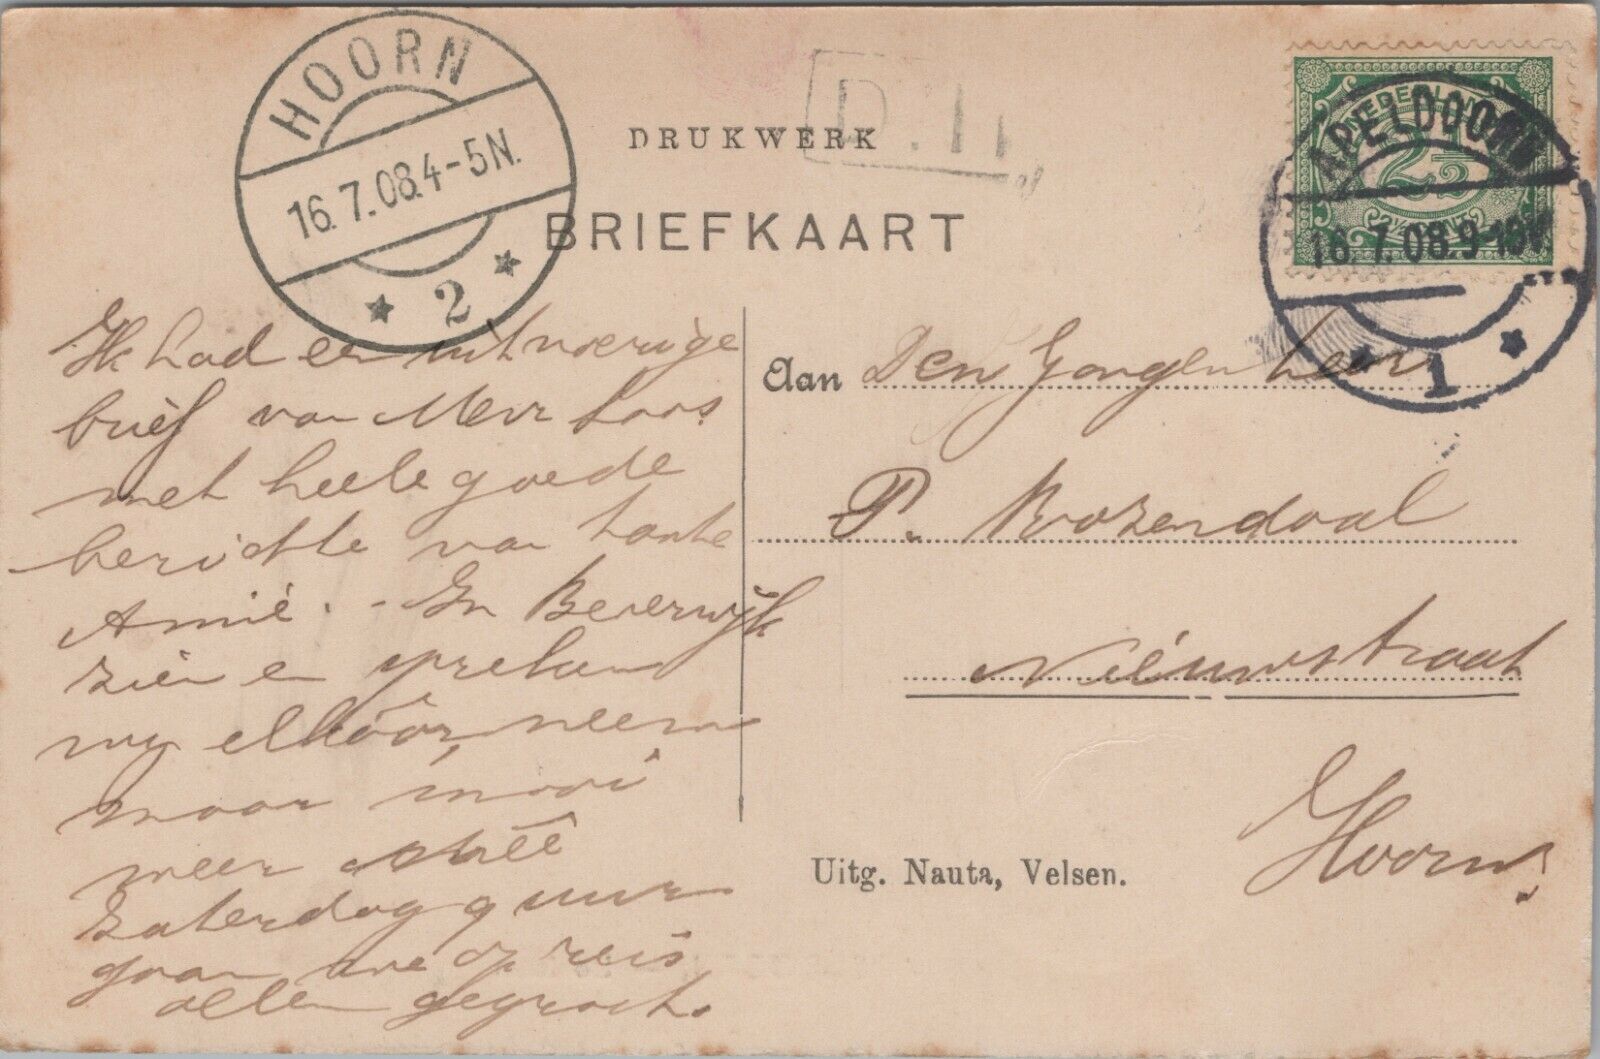 HOORN
16.7.08.4-5N.
2
DRUKWERK
BRIEFKAART
NEDERLAND
2½
2½ CENT
APELDOORN
16.7.08.9-10V
1
Ik had een uitvoerige
brief van Mevr
met heele goede
berichte van tante
Annie. - In Beverwijk
zien en spreken
wij elkaar, neem
maar mooi
weer meê
Zaterdag 9 uur
gaan we op reis
allen gegroet.
Aan Den Jongenheer
P. Rozendaal
Nieuwstraat
Hoorn
Uitg. Nauta, Velsen.